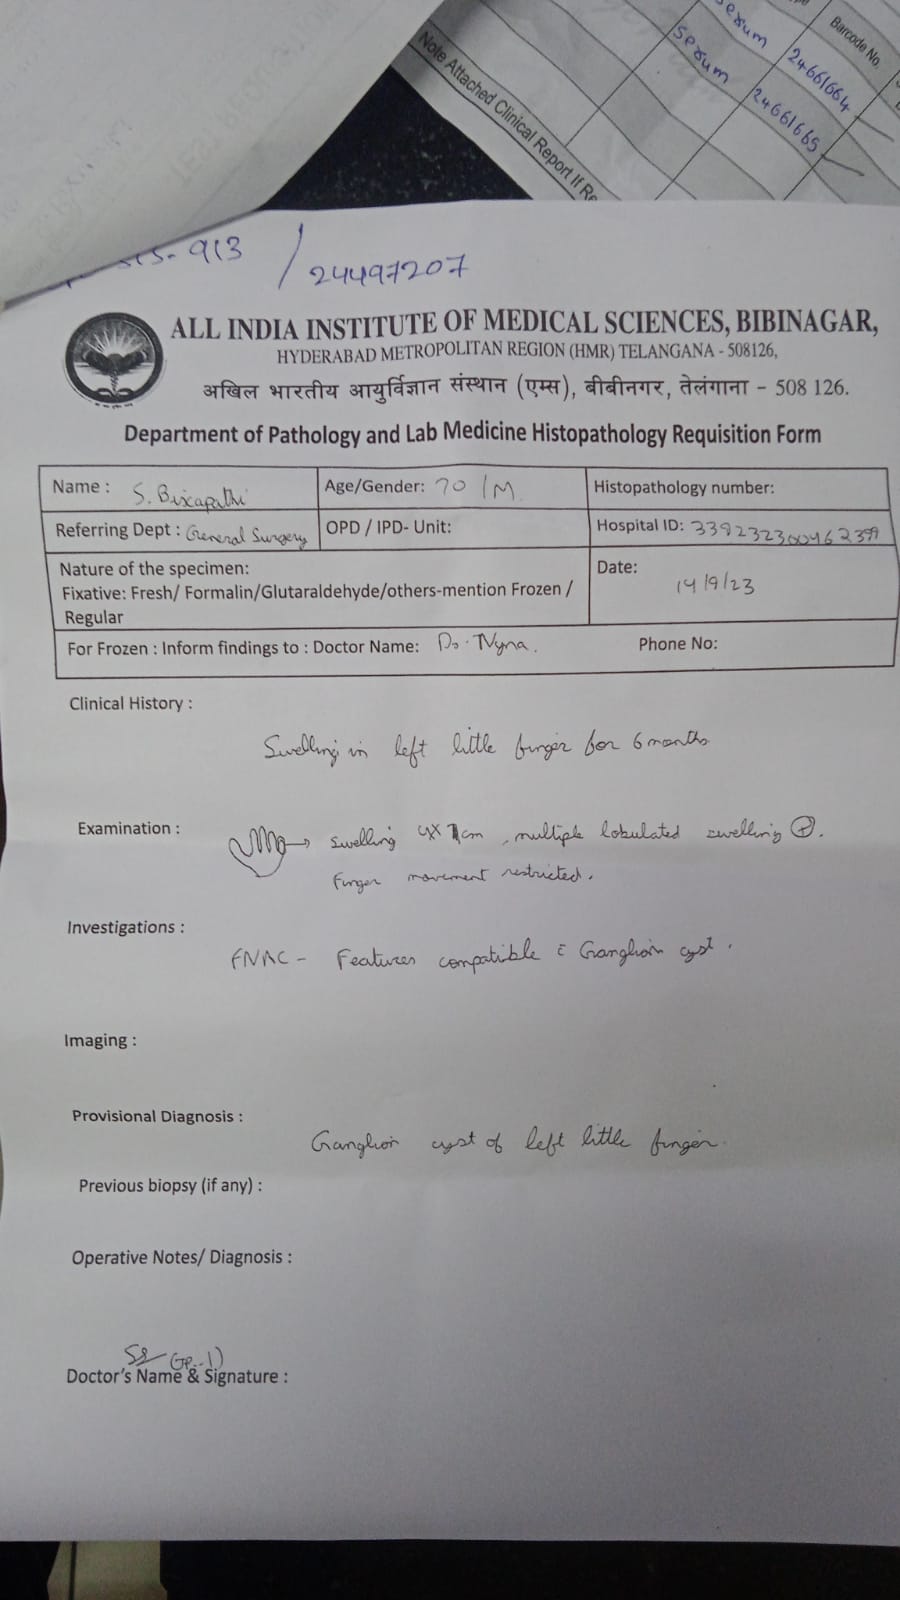 serum 24661664
serum 24661665
Barcode No.
Note Attached Clinical Report If Re
913 / 24497207
ALL INDIA INSTITUTE OF MEDICAL SCIENCES, BIBINAGAR,
HYDERABAD METROPOLITAN REGION (HMR) TELANGANA - 508126,
अखिल भारतीय आयुर्विज्ञान संस्थान (एम्स), बीबीनगर, तेलंगाना - 508 126.
Department of Pathology and Lab Medicine Histopathology Requisition Form
Name : S. Bixapathi Age/Gender: 70 / M Histopathology number:
Referring Dept : General Surgery OPD / IPD- Unit: Hospital ID: 339232300462399
Nature of the specimen: Date:
Fixative: Fresh/ Formalin/Glutaraldehyde/others-mention Frozen / 14/9/23
Regular
For Frozen : Inform findings to : Doctor Name: Phone No:
Clinical History :
Swelling in left little finger for 6 months
Examination :
swelling 4x7cm, multiple lobulated swelling
Finger movement restricted.
Investigations :
FNAC - Features compatible c̄ Ganglion cyst.
Imaging :
Provisional Diagnosis :
Ganglion cyst of left little finger.
Previous biopsy (if any) :
Operative Notes/ Diagnosis :
Doctor's Name & Signature :